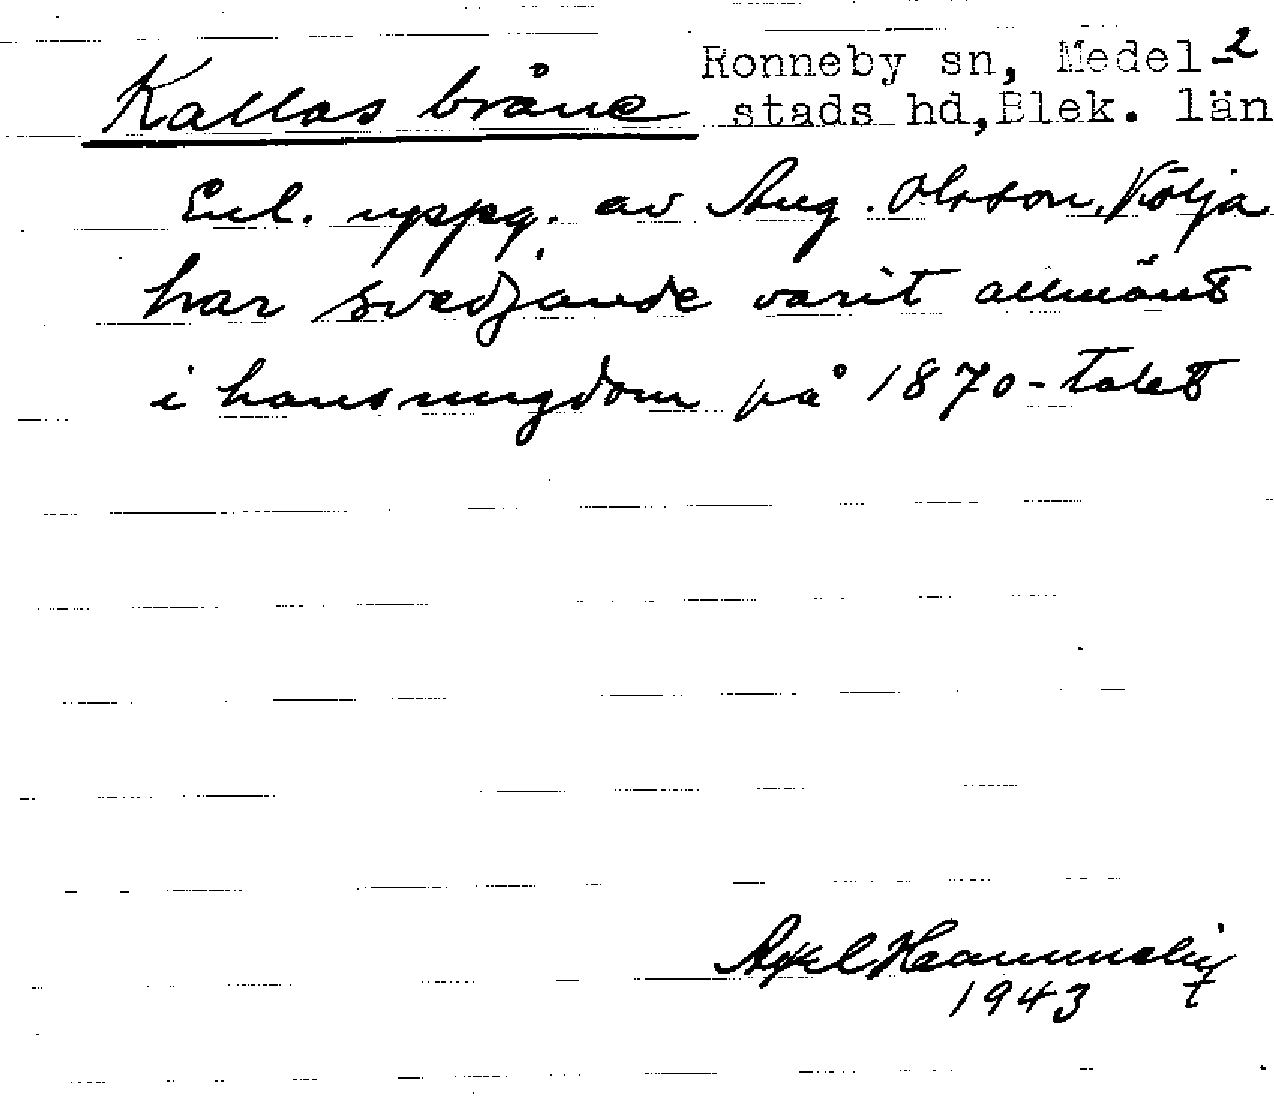 Kallas bråne
Ronneby sn, Medel- 2
stads hd, Blek. län
Enl. uppg. av Aug. Olsson, Kölja
har svedjande varit allmänt
i hans ungdom på 1870-talet
Axel
1943